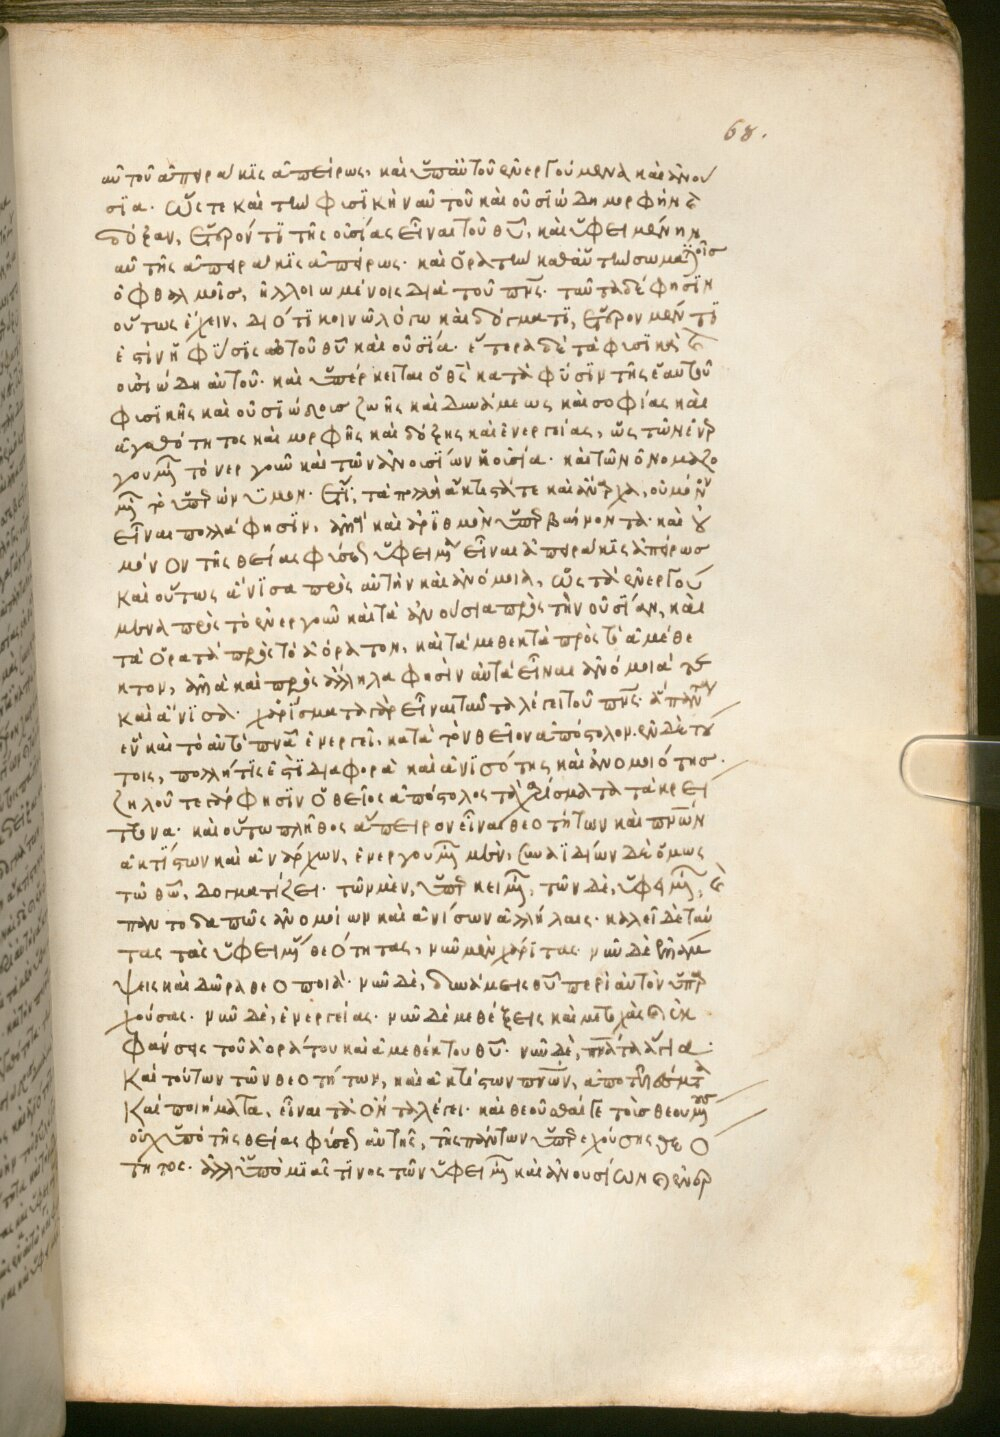 68.
αὐτοῦ ἀπειράκις ἀπείρως, καὶ ὑπ' αὐτοῦ ἐνεργούμενα καὶ ἀνού
σϊα. ὥςτε καὶ τὴν φισϊκὴν αὐτοῦ καὶ οὐσιώδη μορφὴν καὶ
δόξαν, ἕτερόν τϊ τῆς οὐσίας εἶναι τοῦ θῦ, καὶ ὑφειμένην
αὐτῆς ἀπειράκις ἀπείρως. καὶ ὁρατὴν καθ' αὑτὴν σωματικοῖς
ὀφθαλμοῖς, ἠλλοιωμένοις διὰ τοῦ πνς. ταῦτα δέ φησϊν
οὕτως ἔχειν, διότι κοινῶ λόγω καὶ δόγματϊ, ἕτερον μέν τϊ
ἐστὶν ἡ φύσϊς αὐτοῦ θῦ καὶ οὐσία. ἕτερα δὲ τὰ φισϊκὰ καὶ
οὐσιώδη αὐτοῦ. καὶ ὑπέρκειται ὁ θς κατὰ φύσϊν τῆς ἑαυτοῦ
φισϊκῆς καὶ οὐσϊώδους ζωῆς καὶ δυνάμεως καὶ σοφίας καὶ
ἀγαθότητος καὶ μορφῆς καὶ δόξης καὶ ἐνεργείας, ὡς τῶν ἐνερ
γουμένων τὸ ἐνεργοῦν καὶ τῶν ἀνουσίων ἡ οὐσία. καὶ τῶν ὀνομαζο
μένων τὸ ὑπερώνϋμον. ἔτι, τὰ πολλὰ ἄκτιστά τε καὶ ἄναρχα, οὐ μόνον
εἶναι πολλά φησϊν, ἀλλὰ καὶ ἀρϊθμὸν ὑπερβαίνοντα. καὶ οὐ
μόνον τῆς θείας φίσεως ὑφειμένα εἶναι ἀπειράκις ἀπείρως
καὶ οὕτως ἄνϊσα πρὸς αὐτὴν καὶ ἀνόμοια, ὡς τὰ ἐνεργού
μενα πρὸς τὸ ἐνεργοῦν καὶ τὰ ἀνούσια πρὸς τὴν οὐσϊαν, καὶ
τὰ ὁρατὰ πρὸς τὸ ἀόρατον, καὶ τὰ μεθεκτὰ πρὸς τὸ ἀμέθε
κτον, ἀλλὰ καὶ πρὸς ἄλληλα φησὶν αὐτὰ εἶναι ἀνόμοιά τε
καὶ ἄνϊσα. χαρίσματα γὰρ εἶναι ταῦτα λέγει τοῦ πνς. ἃ πάντα
ἓν καὶ τὸ αὐτὸ πνα ἐνεργεῖ, κατὰ τὸν θεῖον ἀπόστολον. ἐν δὲ τού
τοις, πολλή τϊς ἐστϊ διαφορὰ καὶ ἀνϊσότης καὶ ἀνομοιότης.
ζηλοῦτε γάρ φησϊν ὁ θεῖος ἀπόστολος τὰ χαρίσματα τὰ κρεί
ττονα. καὶ οὕτω πλῆθος ἄπειρον εἶναι θεοτήτων καὶ πνων
ἀκτίστων καὶ ἀνάρχων, ἐνεργουμένων μὲν, συναϊδίων δὲ ὅμως
τῶ θῶ, δογματίζει. τῶν μὲν, ὑπερκειμένων, τῶν δὲ, ὑφειμένων, καὶ
παντοδαπῶς ἀνομοίων καὶ ἀνίσων ἀλλήλαις. καλεῖ δὲ ταύ
τας τὰς ὑφειμένας θεότητας, νῦν μὲν χάριτας. νῦν δὲ ἐλλάμ
ψεις καὶ δῶρα θεοποιὰ. νῦν δὲ, δυνάμεις θῦ περὶ αὐτὸν ὑπαρ
χούσας. νῦν δὲ, ἐνεργείας. νῦν δὲ μεθέξεις καὶ μετοχὰς καὶ ἐκ
φάνσεις τοῦ ἀοράτου καὶ ἀμεθέκτου θῦ. νῦν δὲ, πνατα ἅγια.
καὶ τούτων τῶν θεοτήτων, καὶ ἀκτίστων πνων,
καὶ ποιήματα, εἶναι τὰ ὄντα λέγει. καὶ θεοῦσθαι γε τοὺς θεουμένους
οὐχ ὑπὸ τῆς θείας φίσεως αὐτῆς, τῆς πάντων ὑπερεχούσης θεό
τητος. ἀλλ' ὑπὸ μιᾶς τϊνος τῶν ὑφειμένων καὶ ἀνουσίων καὶ ἐνερ